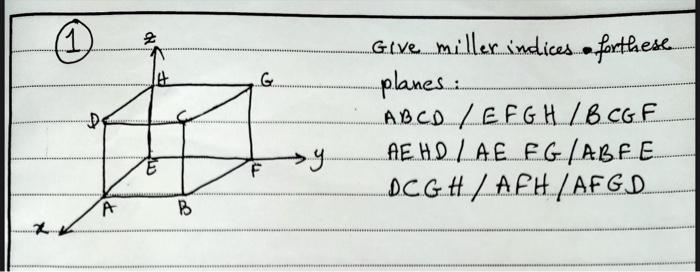 1
z
H
G
D
C
E
F
y
A
B
x
Give miller indices for these
planes :
ABCD / EFGH / BCGF
AEHD / AE FG / ABFE
DCGH / AFH / AFGD